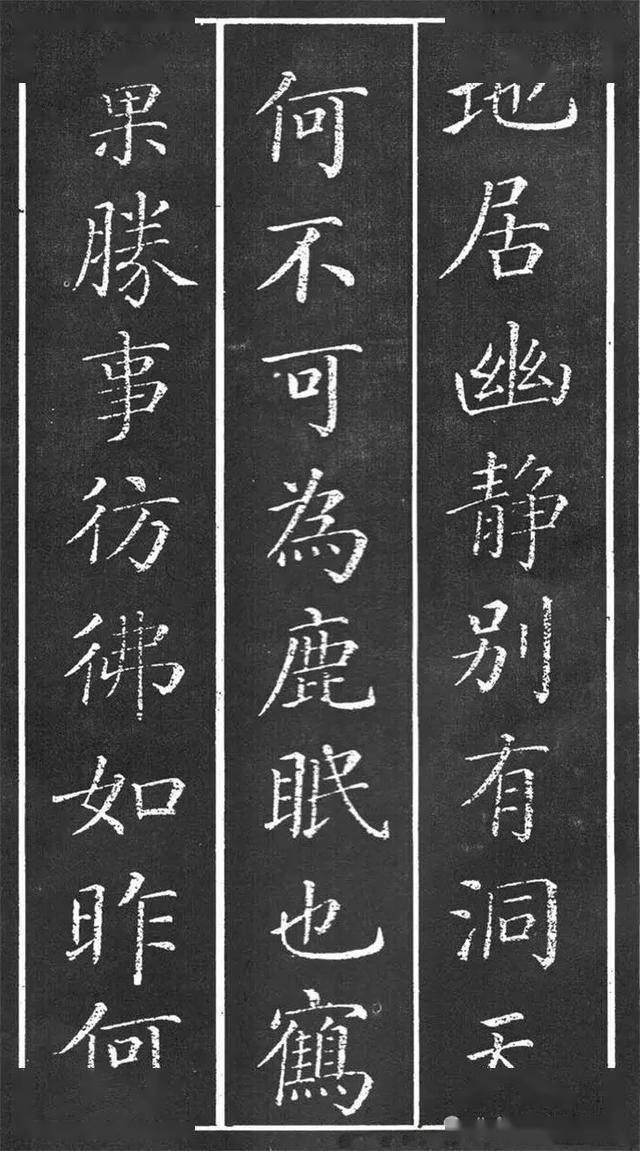 地居幽静别有洞天
何不可為鹿眠也鶴
果勝事彷彿如昨何